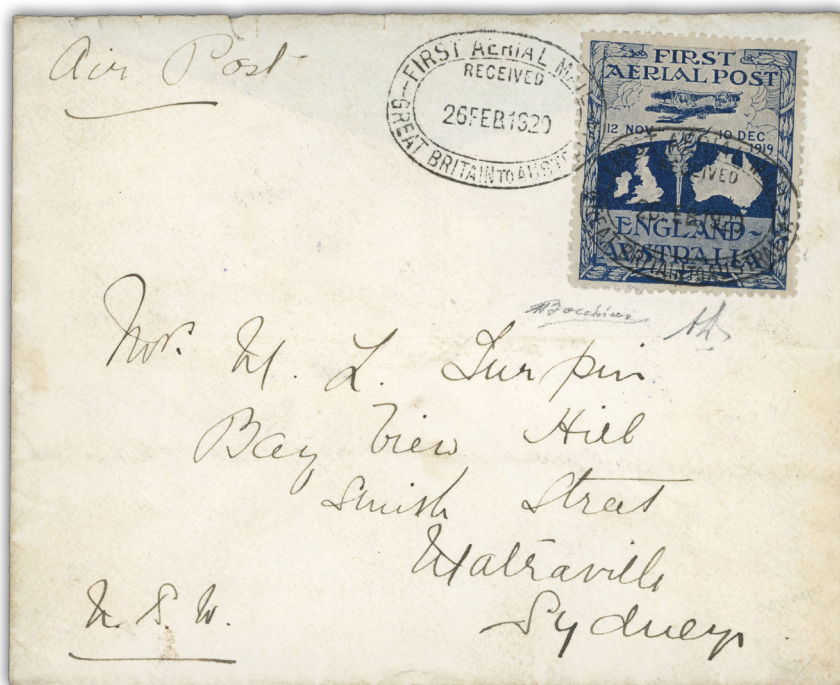 Air Post
FIRST AERIAL MAIL
RECEIVED
26FEB1920
GREAT BRITAIN TO AUST
FIRST
AERIAL POST
12 NOV. 10 DEC
1919
RECEIVED
ENGLAND~
AUSTRALIA
GREAT BRITAIN TO AUSTRALIA
Mr. M. L. Turpin
Bay View Hill
Smith Street
Matraville
Sydney.
N. S. W.